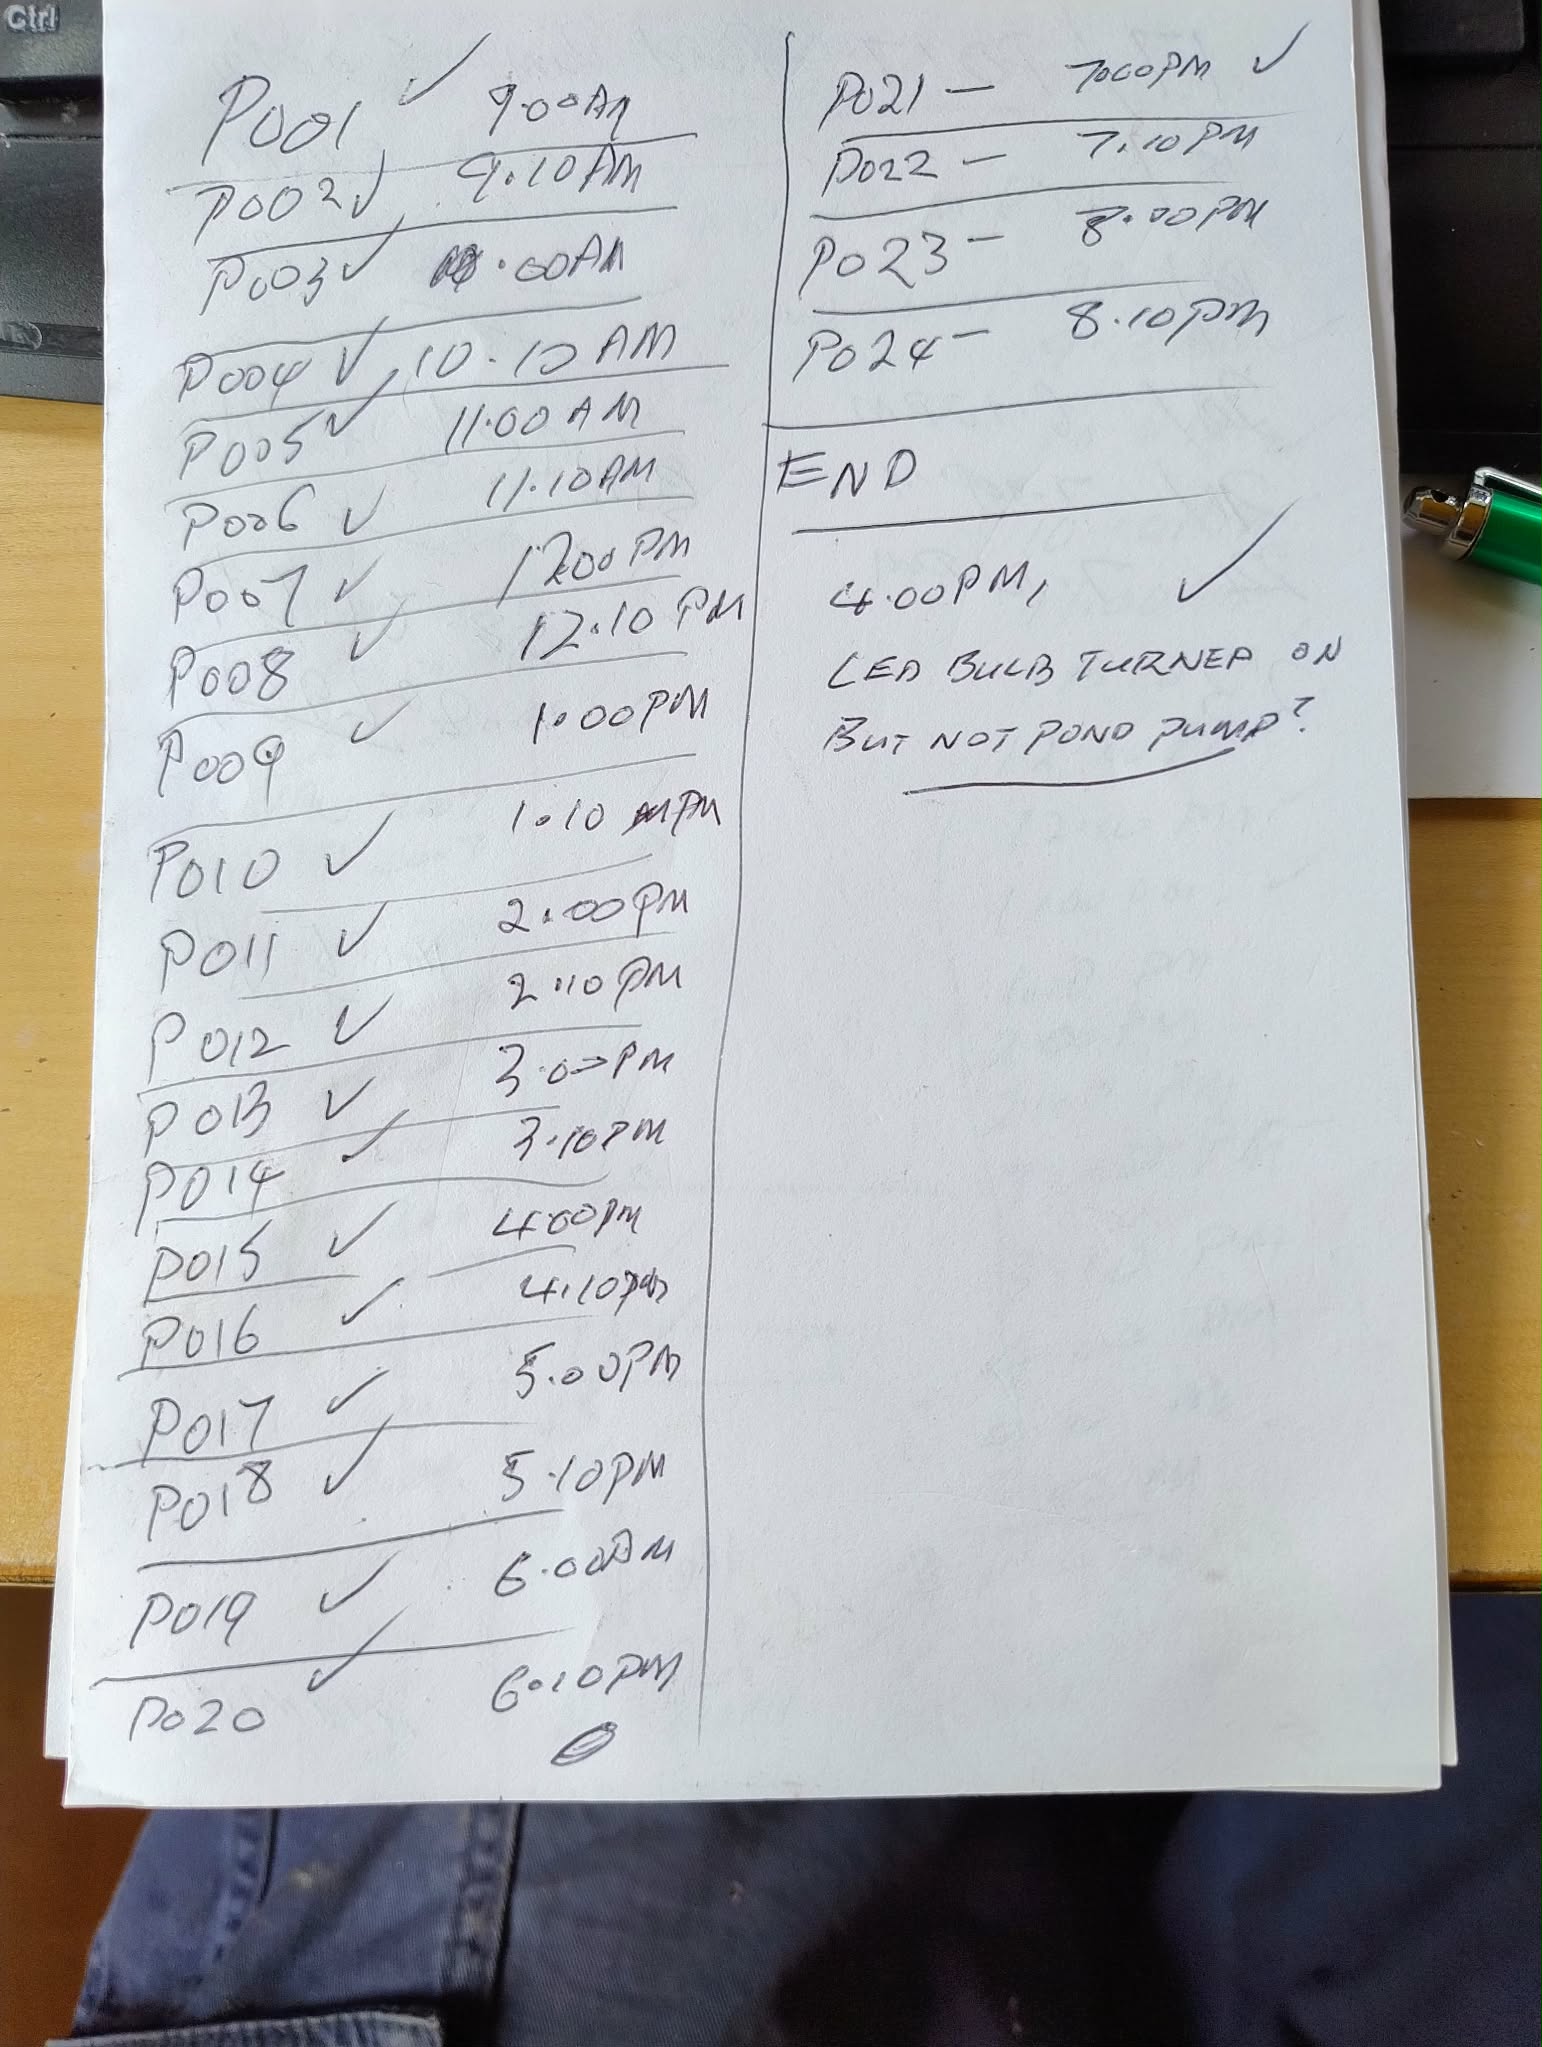 Ctrl
P001 ✓ 9.00AM
P002 ✓ 9.10AM
P003 ✓ .00AM
P004 ✓ 10.10AM
P005 ✓ 11.00AM
P006 ✓ 11.10AM
P007 ✓ 12.00PM
P008 ✓ 12.10PM
P009 ✓ 1.00PM
P010 ✓ 1.10 PM
P011 ✓ 2.00PM
P012 ✓ 2.10PM
P013 ✓ 3.00PM
P014 ✓ 3.10PM
P015 ✓ 4.00PM
P016 ✓ 4.10PM
P017 ✓ 5.00PM
P018 ✓ 5.10PM
P019 ✓ 6.00PM
P020 ✓ 6.10PM
P021 — 7.00PM ✓
P022 — 7.10PM
P023 — 8.00PM
P024 — 8.10PM
END
4.00PM, ✓
LED BULB TURNED ON
BUT NOT POND PUMP?